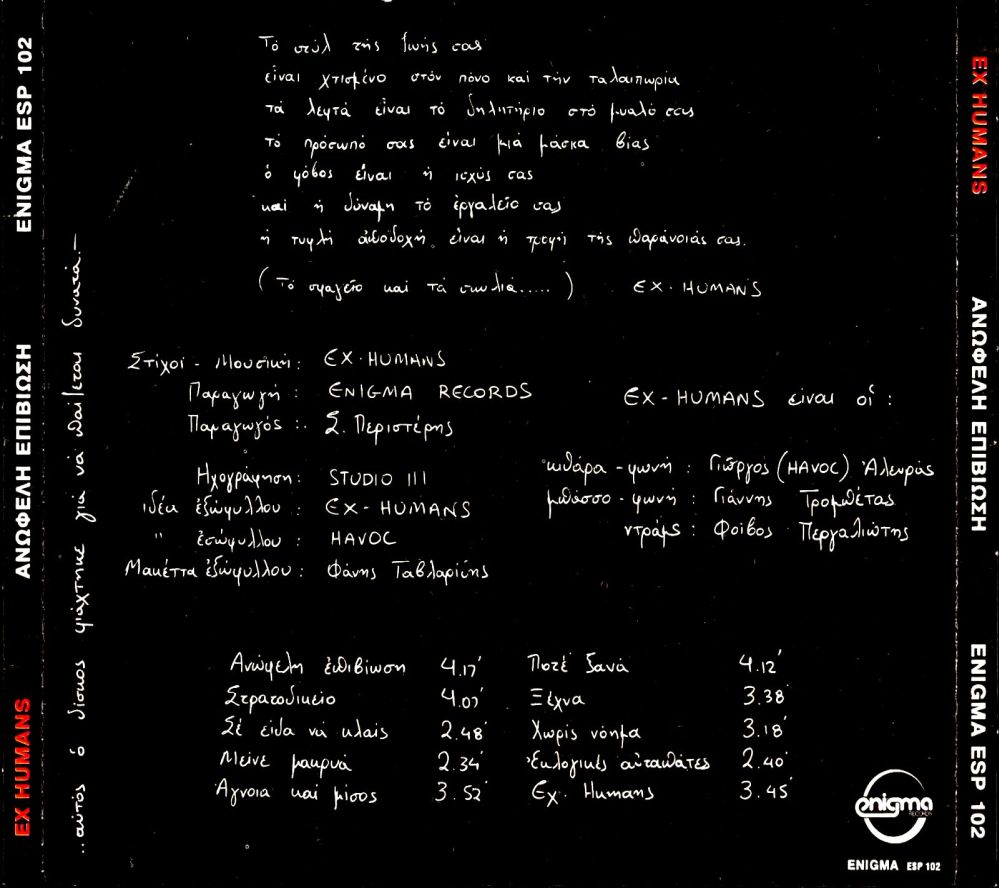 Τό στύλ τῆς ζωῆς σας
εἶναι χτισμένο στόν πόνο καί τήν ταλαιπωρία
τά λεφτά εἶναι τό δηλητήριο στό μυαλό σας
τό πρόσωπό σας εἶναι μιά μάσκα βίας
ὁ φόβος εἶναι ἡ ισχύς σας
καί ἡ δύναμη τό ἐργαλεῖο σας
ἡ τυφλή ἀποδοχή εἶναι ἡ τροφή τῆς παράνοιάς σας.
(Τό σφαγεῖο καί τά σκυλιά.....) EX-HUMANS
Στίχοι - Μουσική: EX-HUMANS
Παραγωγή: ENIGMA RECORDS
Παραγωγός: Σ. Περιστέρης
Ηχογράφηση: STUDIO III
ιδέα ἐξώφυλλου: EX-HUMANS
" ἐσώφυλλου: HAVOC
Μακέττα ἐξώφυλλου: Φάνης Ταβλαρίδης
EX-HUMANS εἶναι οἱ:
κιθάρα - φωνή: Γιῶργος (HAVOC) Ἀλευράς
μπάσσο - φωνή: Γιάννης Τρομπέτας
ντράμς: Φοίβος Περγαλιώτης
Ανώφελη ἐπιβίωση 4.17'
Στρατοδικείο 4.07'
Σέ εἶδα νά κλαῖς 2.48'
Μείνε μακρυά 2.34'
Άγνοια καί μίσος 3.52'
Ποτέ ξανά 4.12'
Ξέχνα 3.38'
Χωρίς νόημα 3.18'
Ἐκλογικές αὐταπάτες 2.40'
Ex-Humans 3.45'
..αὐτός ὁ δίσκος φτιάχτηκε γιά νά παίζεται δυνατά.-
EX HUMANS ΑΝΩΦΕΛΗ ΕΠΙΒΙΩΣΗ ENIGMA ESP 102
EX HUMANS ΑΝΩΦΕΛΗ ΕΠΙΒΙΩΣΗ ENIGMA ESP 102
enigma
RECORDS
ENIGMA ESP 102